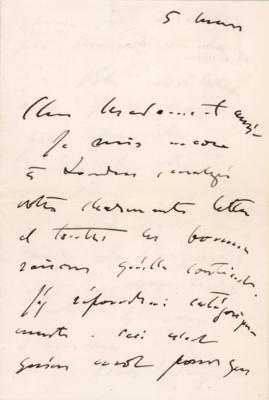 5 mars
Chère Madame et amie
Je suis encore
à Londres
votre charmante lettre
et toutes les bonnes
raisons qu'elle contient.
J'y répondrai catégorique-
ment. Ceci n'est
qu'un mot pour que